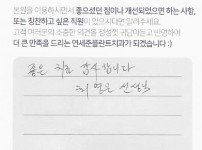 본원을 이용하시면서 좋으셨던 점이나 개선되었으면 하는 사항,
또는 칭찬하고 싶은 직원이 있으시다면 알려주세요.
고객 여러분의 소중한 의견을 정성껏 귀담아듣고 반영하여
더 큰 만족을 드리는 연세준플란트치과가 되겠습니다 :)
좋은 치료 감사합니다
선생님